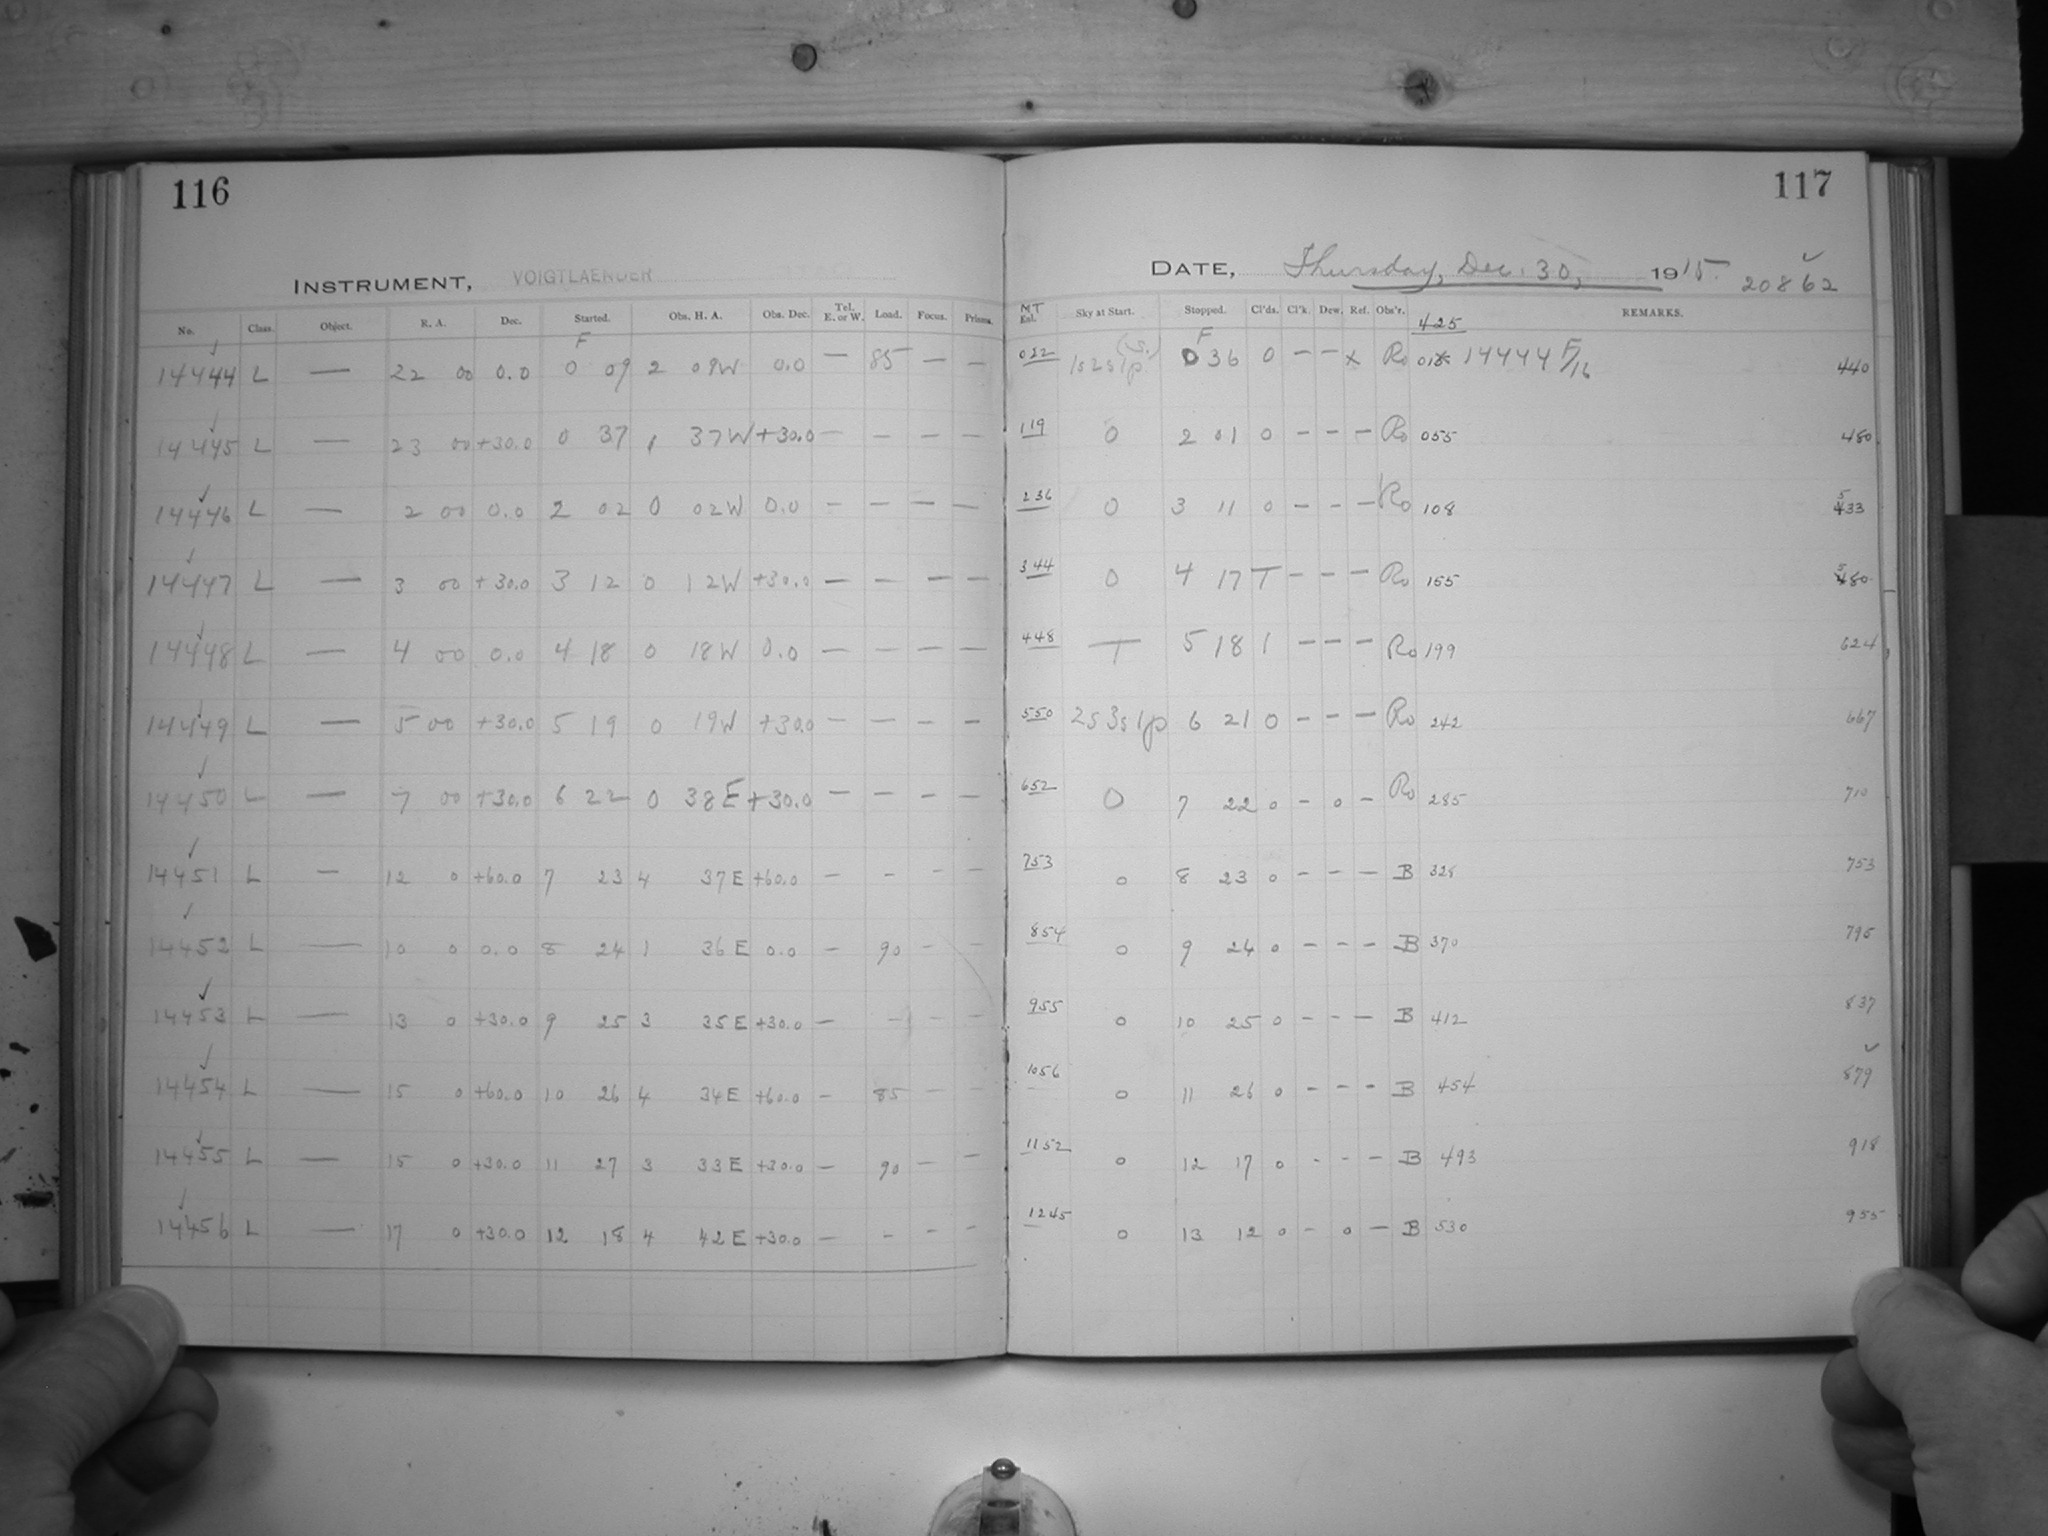 116
INSTRUMENT, VOIGTLAENDER
No. Class. Object. R. A. Dec. Started. Obs. H. A. Obs. Dec. Tel. E. or W. Load. Focus. Prisms.
F
14444 L — 22 00 0.0 0 09 2 09W 0.0 — 85 — —
14445 L — 23 00 +30.0 0 37 1 37W +30.0 — — — —
14446 L — 2 00 0.0 2 02 0 02W 0.0 — — — —
14447 L — 3 00 +30.0 3 12 0 12W +30.0 — — — —
14448 L — 4 00 0.0 4 18 0 18W 0.0 — — — —
14449 L — 5 00 +30.0 5 19 0 19W +30.0 — — — —
14450 L — 7 00 +30.0 6 22 0 38E +30.0 — — — —
14451 L — 12 0 +60.0 7 23 4 37E +60.0 — - - —
14452 L — 10 0 0.0 8 24 1 36E 0.0 — 90 - —
14453 L — 13 0 +30.0 9 25 3 35E +30.0 — - - —
14454 L — 15 0 +60.0 10 26 4 34E +60.0 — 85 — —
14455 L — 15 0 +30.0 11 27 3 33E +30.0 — 90 — —
14456 L — 17 0 +30.0 12 18 4 42E +30.0 — - - —
117
DATE, Thursday, Dec. 30, 1915. 20862
MT Ext. Sky at Start. Stopped. Cl'ds. Cl'k. Dew. Ref. Obs'r. REMARKS.
F 425
022 1s2s1p (s.) 0 36 0 — — x Ro 018 14444 F/16 440
119 0 2 01 0 — — — Ro 055 480
236 0 3 11 0 — - — Ro 108 533
344 0 4 17 T — — — Ro 155 580
448 T 5 18 1 — — — Ro 199 624
550 2s3s1p 6 21 0 — — — Ro 242 667
652 0 7 22 0 - 0 - Ro 285 710
753 0 8 23 0 - - — B 328 753
854 0 9 24 0 - - - B 370 795
955 0 10 25 0 - - — B 412 837
1056 0 11 26 0 - - - B 454 879
1152 0 12 17 0 - - - B 493 918
1245 0 13 12 0 - 0 — B 530 955